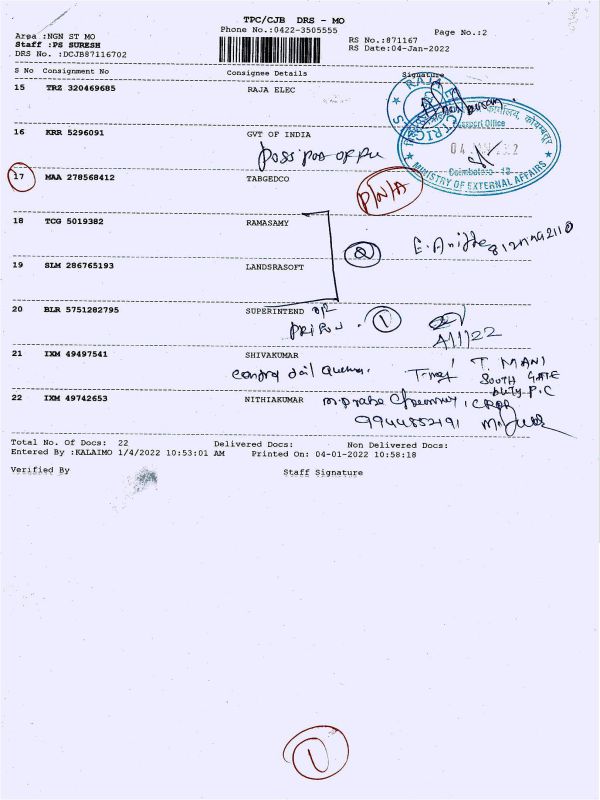 TPC/CJB DRS - MO
Phone No.:0422-3505555
Page No.:2
Area :NGN ST MO
Staff :PS SURESH
DRS No. :DCJB87116702
RS No.:871167
RS Date:04-Jan-2022
S No Consignment No Consignee Details Signature
15 TRZ 320469685 RAJA ELEC
RAJA
16 KRR 5296091 GVT OF INDIA
Passport Office
04
Coimbatore - 12
MINISTRY OF EXTERNAL AFFAIRS
17 MAA 278568412 TABGEDCO
P/N/A
18 TCG 5019382 RAMASAMY
2
19 SLM 286765193 LANDSRASOFT
20 BLR 5751282795 SUPERINTEND OF
PRISON. 1
4/1/22
21 IXM 49497541 SHIVAKUMAR
T. MANI
SOUTH GATE
Duty P.C
22 IXM 49742653 NITHIAKUMAR
9944852191
Total No. Of Docs: 22 Delivered Docs: Non Delivered Docs:
Entered By :KALAIMO 1/4/2022 10:53:01 AM Printed On: 04-01-2022 10:58:18
Verified By Staff Signature
1